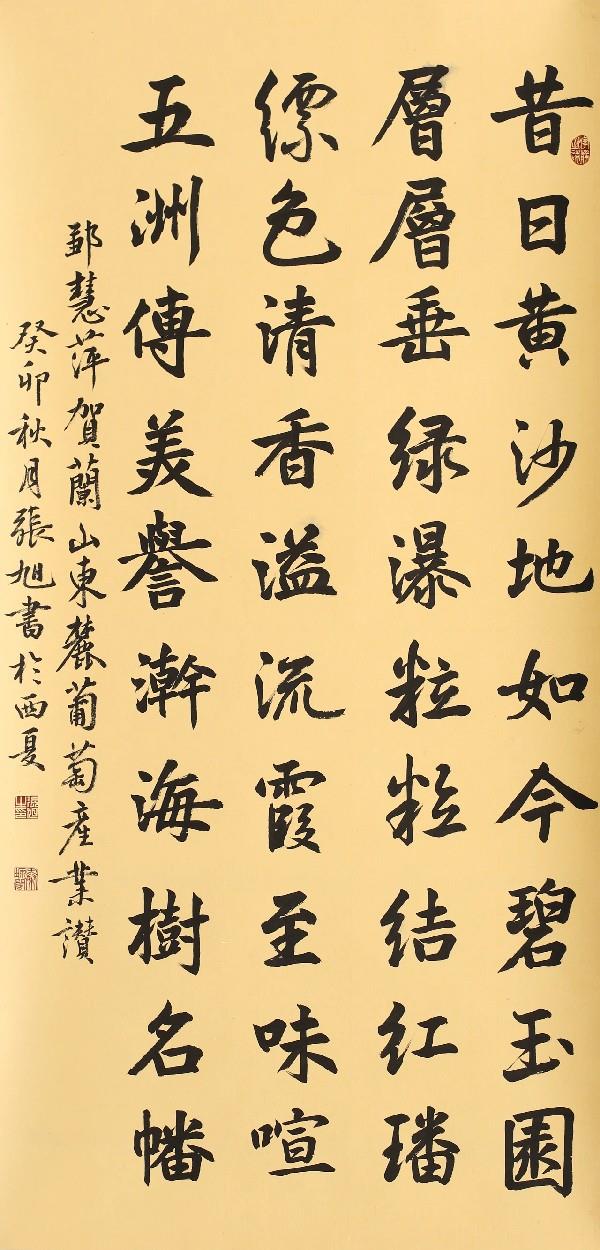 昔日黄沙地如今碧玉園
層層垂绿瀑粒粒结红璠
缥色清香溢流霞至味喧
五洲傳美譽瀚海樹名幡
郅慧萍賀蘭山東麓葡萄産業讃
癸卯秋月張旭書於西夏